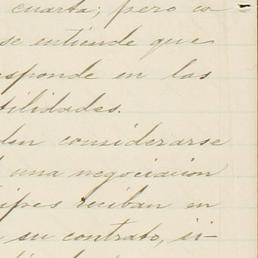 cuarta; pero co
se entiende que
esponde en las
tilidades.
den considerarse
una negociacion
cipes reciban en
su contrato, si-